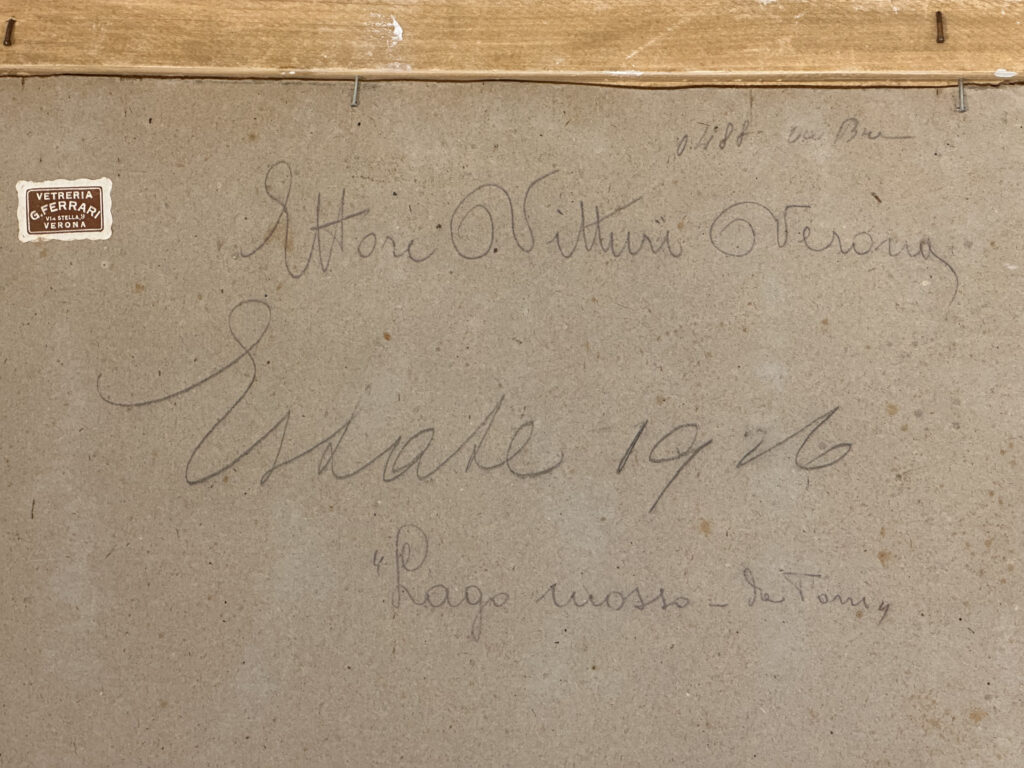 VETRERIA
G. FERRARI
VIA STELLA,
VERONA
Ettore Vitturi Verona
Estate 1926
"Lago mosso - da Torri"